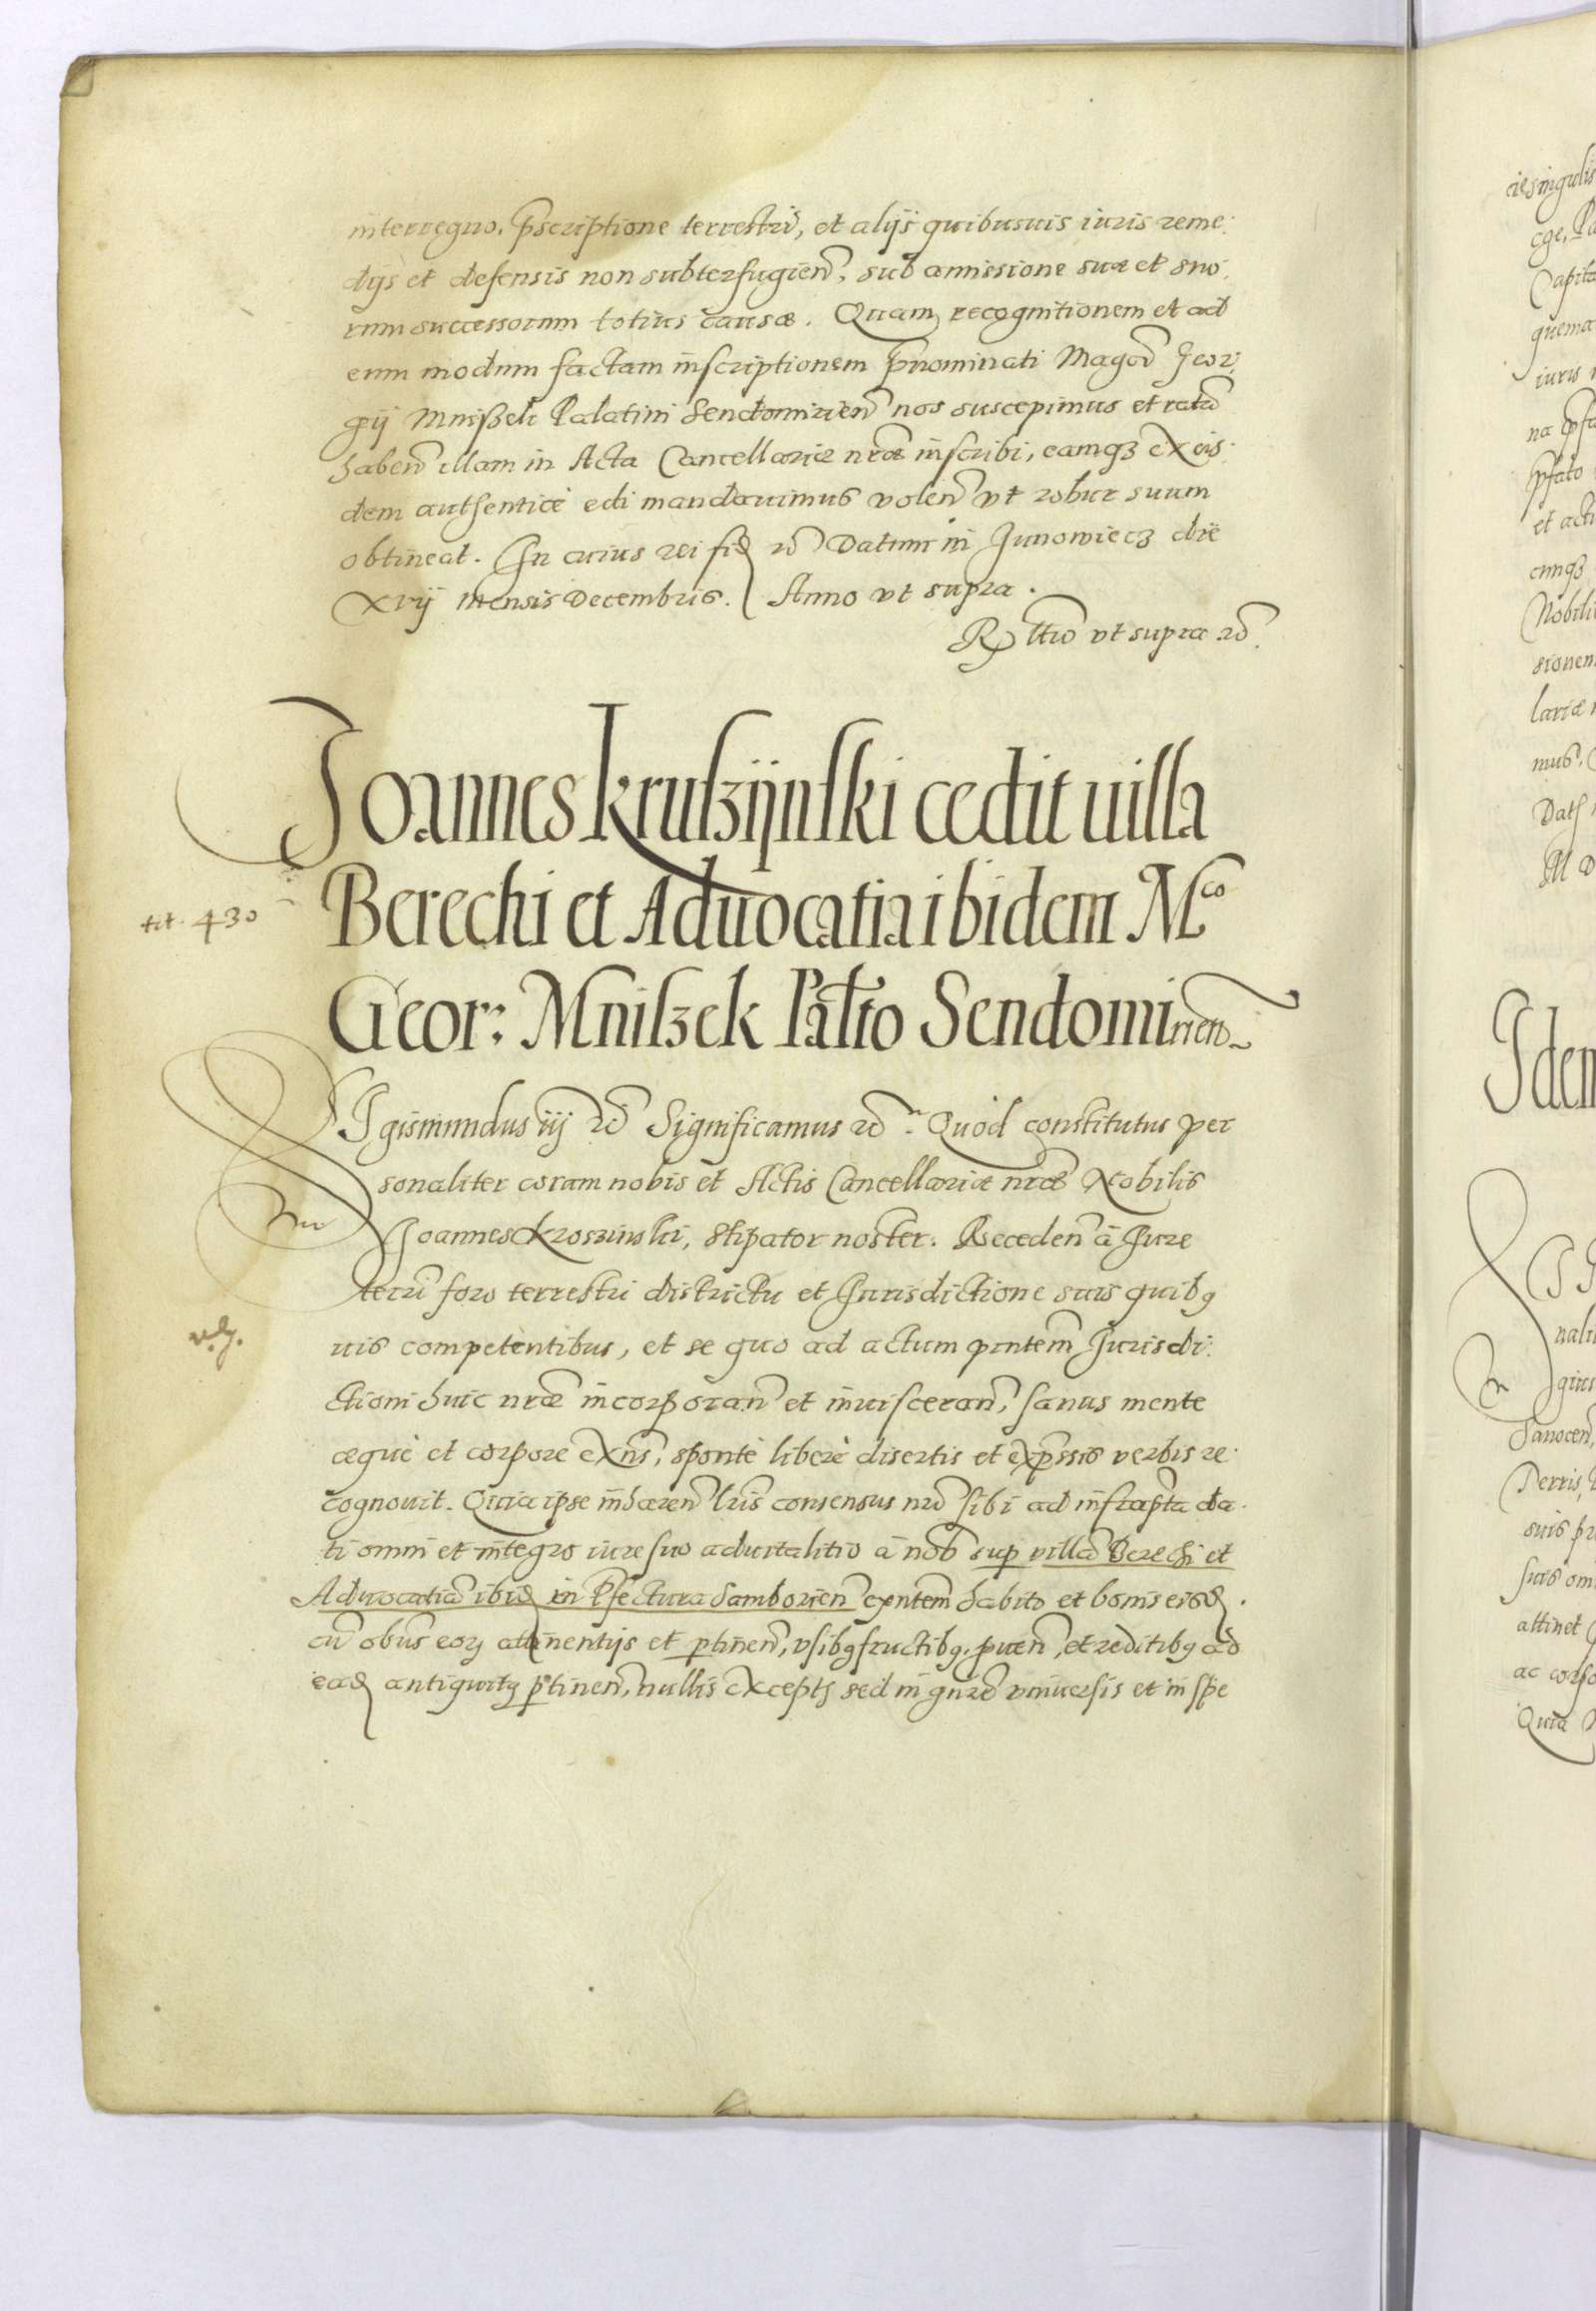 interregno. pscriptione terrestri, et alijs quibusuis iuris reme:
dijs et defensis non subterfugien, sub amissione suæ et suo:
rum successorum totius causæ. Quam recognitionem et ad
eum modum factam inscriptionem pnominati Magci Geor:
gij Mnißek Palatini Sendomirien nos suscepimus et ratā
haben illam in Acta Cancellariæ nræ inscribi, eamqȝ ex eis:
dem authenticè edi mandauimus volen vt robur suum
obtineat. In cuius rei fid rc Datum in Junowiecz die
xvij mensis Decembris. Anno vt supra.
R ltio vt supra rc.
Joannes Krulzijnski cedit uilla
Berechi et Aduocatia ibidem Mco
Geor: Mniszek Palto Sendomirien
tit. 430
Sigismundus iij rc Significamus rc. Quod constitutus per
sonaliter coram nobis et Actis Cancellariæ nræ Nobilis
Joannes Kroszinski, Stipator noster. Receden à Jure
terri foro terrestri districtu et Jurisdictione suis quibq
uis competentibus, et se quo ad actum pntem Jurisdi:
ctioni huic nræ incorporan et inuisceran, sanus mente
æquè et corpore exns, spontè liberè disertis et expssis verbis re:
cognouit. Quia ipse inhæren lris consensus nri sibi ad infrapta da:
ti omni et integro iure suo aduitalitio à nob sup villa Berechi et
Aduocatia ibid in Pfectura Samborien exntem habito et bonis eisd.
cū obus eorz attinentijs et ptinen, vsibq fructibq. puen, et reditibq ad
ead antiquitq ptinen, nullis exceptis sed in gnre vniuersis et in spe
ciesingulis
Capita
quema
iuris
et acti
cumqȝ
Nobili
sionem
lariæ
mus.
Idem
nali
gius
Sanocen
Terris,
suis
suis om
attinet
Quia